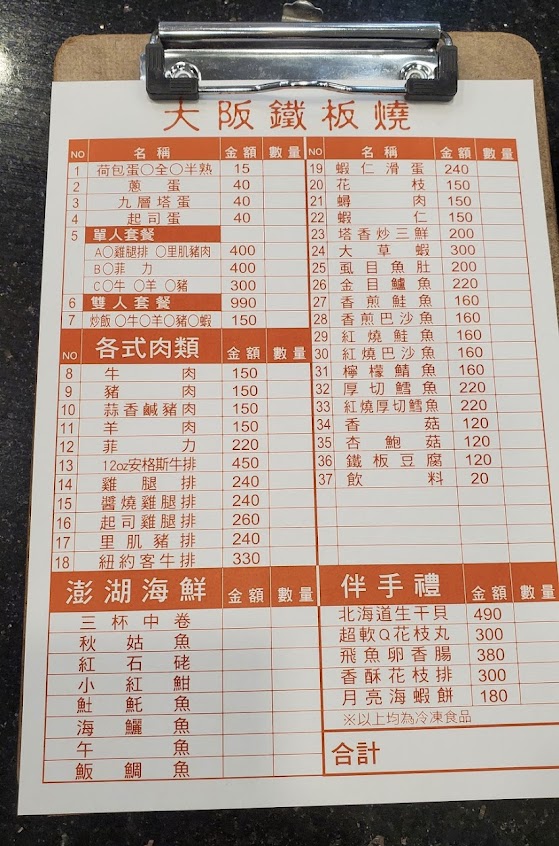 大阪鐵板燒
NO 名稱 金額 數量
1 荷包蛋○全○半熟 15
2 蔥蛋 40
3 九層塔蛋 40
4 起司蛋 40
5 單人套餐
A○雞腿排 ○里肌豬肉 400
B○菲力 400
C○牛 ○羊 ○豬 300
6 雙人套餐 990
7 炒飯 ○牛○羊○豬○蝦 150
NO 各式肉類 金額 數量
8 牛肉 150
9 豬肉 150
10 蒜香鹹豬肉 150
11 羊肉 150
12 菲力 220
13 12oz安格斯牛排 450
14 雞腿排 240
15 醬燒雞腿排 240
16 起司雞腿排 260
17 里肌豬排 240
18 紐約客牛排 330
NO 名稱 金額 數量
19 蝦仁滑蛋 240
20 花枝 150
21 蟳肉 150
22 蝦仁 150
23 塔香炒三鮮 200
24 大草蝦 300
25 虱目魚肚 200
26 金目鱸魚 220
27 香煎鮭魚 160
28 香煎巴沙魚 160
29 紅燒鮭魚 160
30 紅燒巴沙魚 160
31 檸檬鯖魚 160
32 厚切鱈魚 220
33 紅燒厚切鱈魚 220
34 香菇 120
35 杏鮑菇 120
36 鐵板豆腐 120
37 飲料 20
澎湖海鮮 金額 數量
三杯中卷
秋姑魚
紅石硓
小紅魽
魠魠魚
海鱺魚
午魚
飯鯛魚
伴手禮 金額 數量
北海道生干貝 490
超軟Q花枝丸 300
飛魚卵香腸 380
香酥花枝排 300
月亮海蝦餅 180
※以上均為冷凍食品
合計